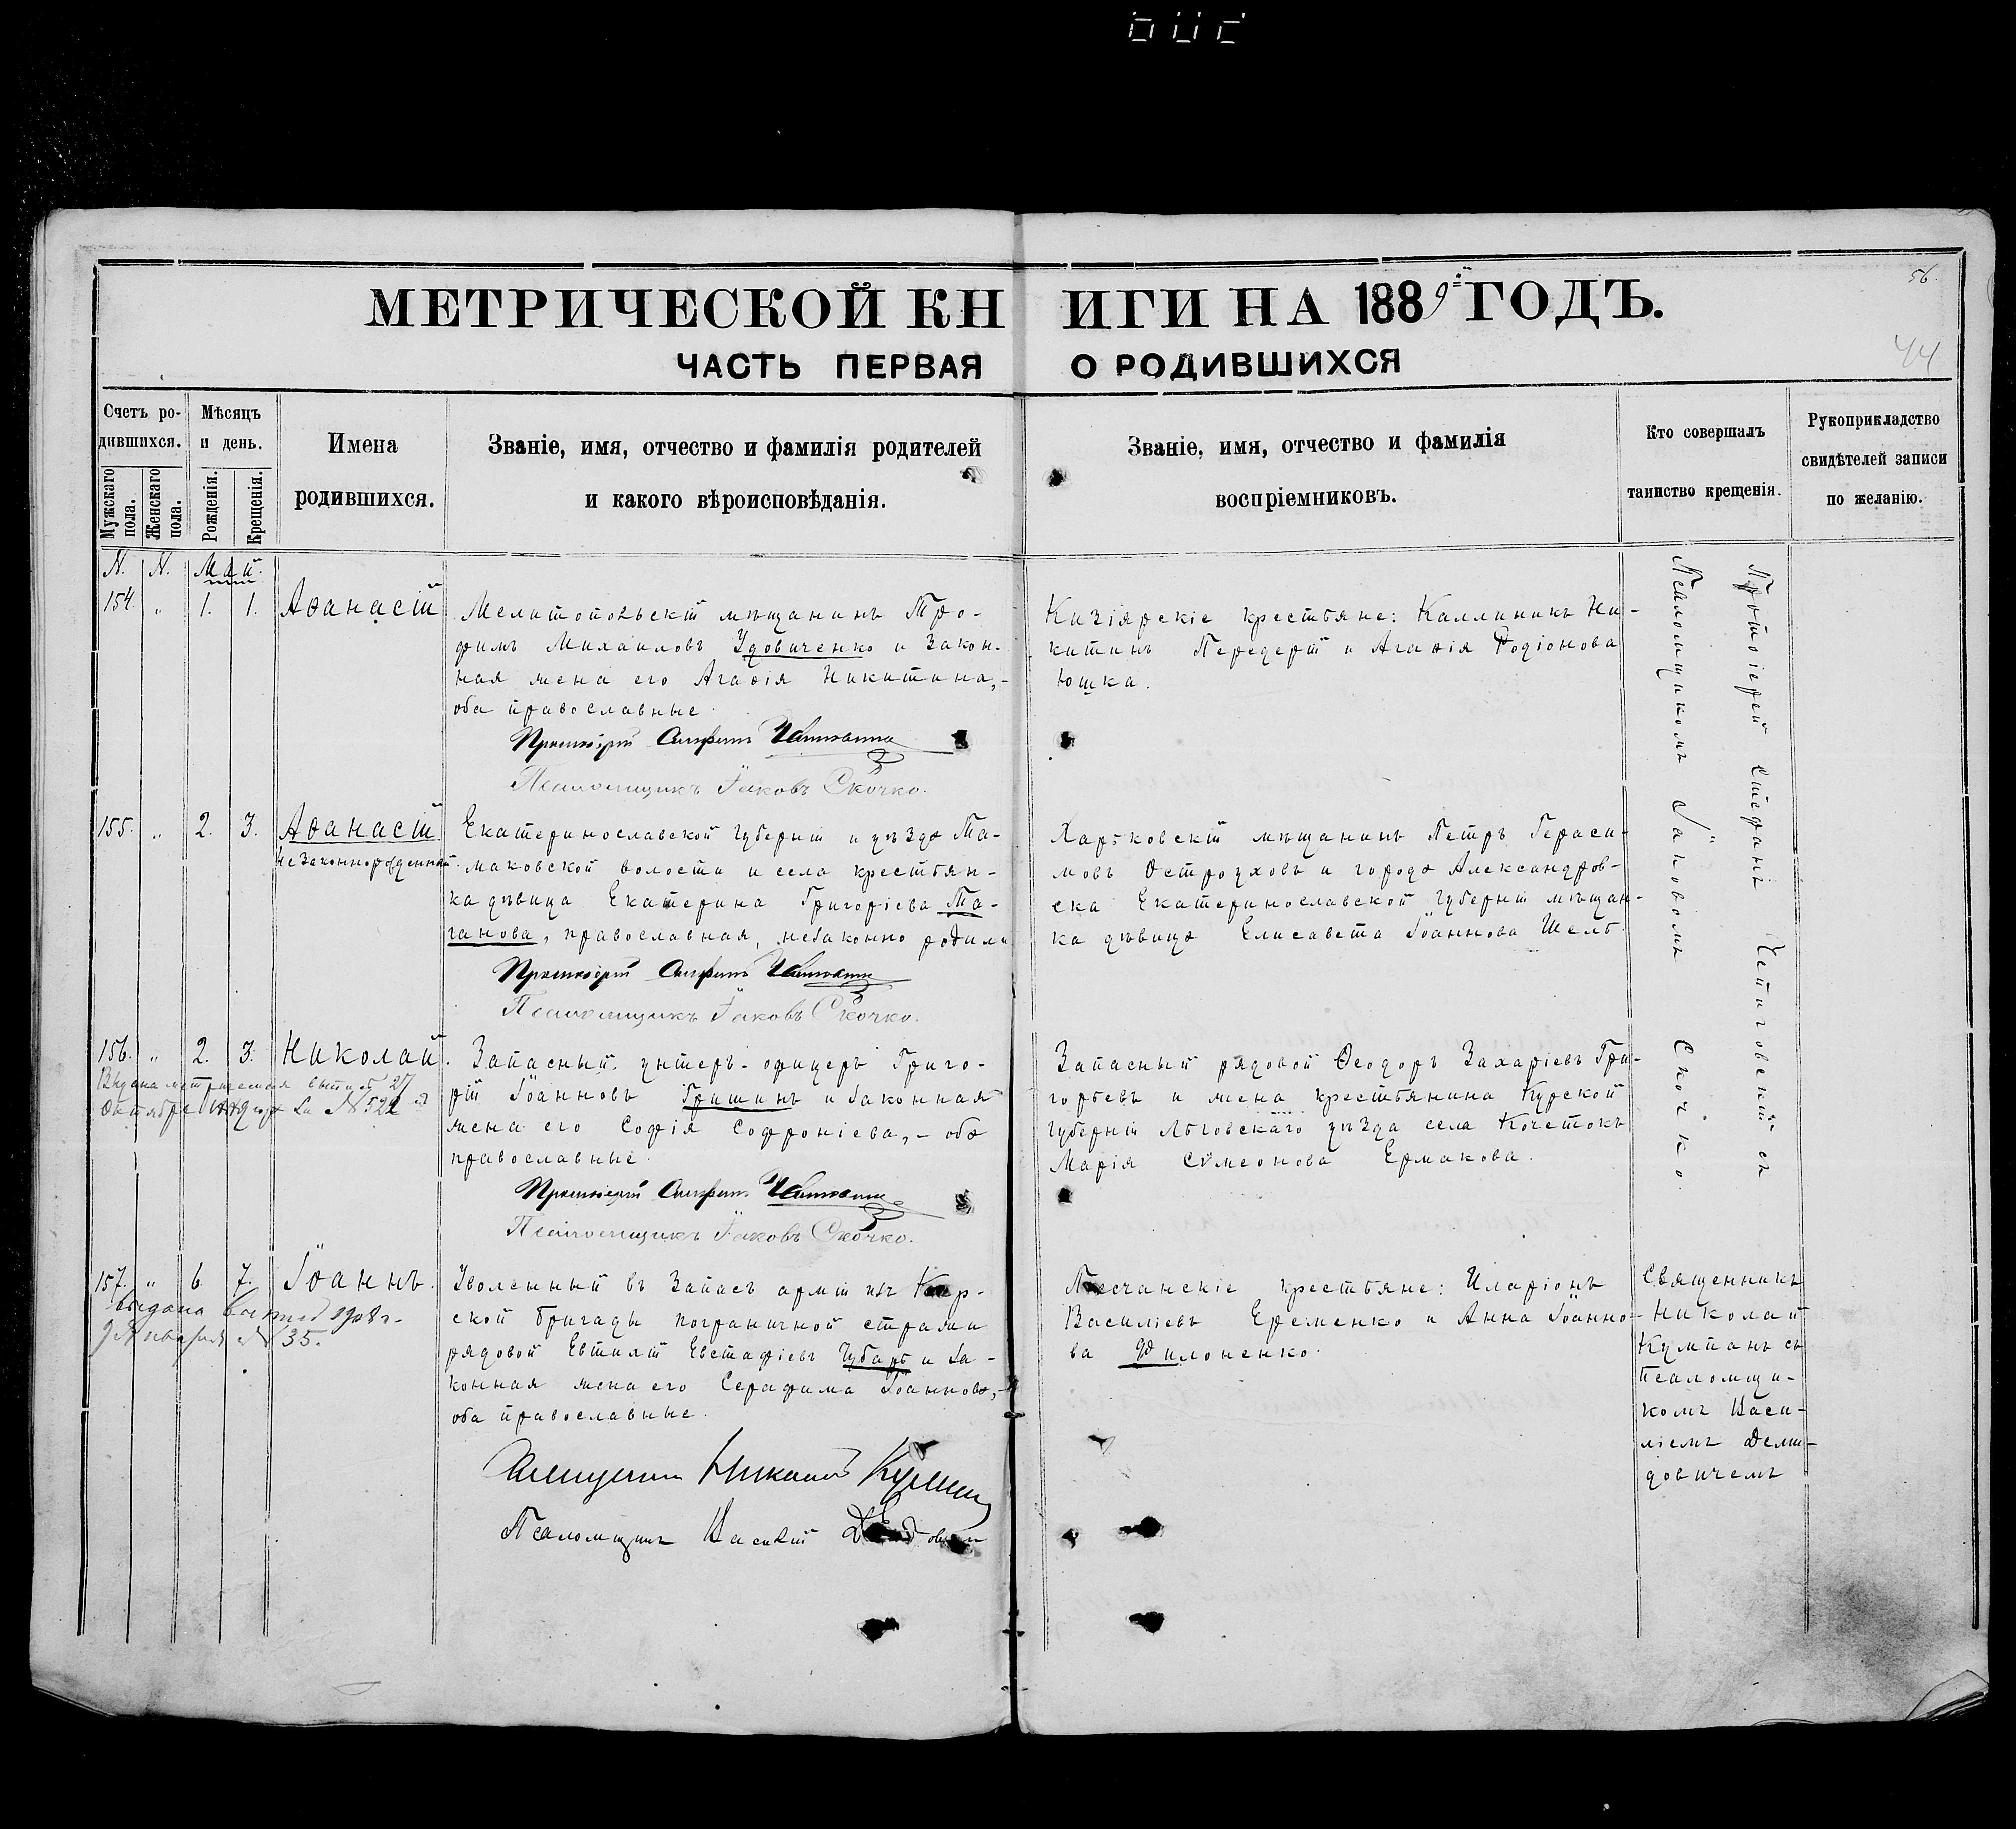 56.
МЕТРИЧЕСКОЙ КНИГИ НА 1889й ГОДЪ.
44
ЧАСТЬ ПЕРВАЯ О РОДИВШИХСЯ
Счетъ ро-
дившихся.
Мужскаго пола.
Женскаго пола.
Мѣсяцъ
и день.
Рожденія.
Крещенія.
Имена
родившихся.
Званіе, имя, отчество и фамилія родителей
и какого вѣроисповѣданія.
Званіе, имя, отчество и фамилія
воспріемниковъ.
Кто совершалъ
таинство крещенія.
Рукоприкладство
свидѣтелей записи
по желанію.
N. N. Май.
154. „ 1. 1. Аѳанасій
Мелитопольскій мѣщанинъ Тро-
фимъ Михаиловъ Удовиченко и закон-
ная жена его Агаѳія Никитина,-
оба православные.
Протоіерей Стефанъ
Псаломщикъ Іаковъ Скочко.
Кизіярскіе крестьяне: Каллиникъ Ни-
китинъ Передерій и Агаѳія Родіонова
Юшка.
Протоіерей Стефанъ съ
Псаломщикомъ Іаковомъ Скочко.
155. „ 2. 3. Аѳанасій
незаконнорожденный.
Екатеринославской губерніи и уѣзда То-
маковской волости и села крестьян-
ка дѣвица Екатерина Григоріева Та-
ганова, православная, незаконно родила
Протоіерей Стефанъ
Псаломщикъ Іаковъ Скочко.
Харьковскій мѣщанинъ Петръ Гераси-
мовъ Остроуховъ и города Александров-
ска Екатеринославской губерніи мѣщан-
ка дѣвица Елисавета Іоаннова Шель.
156. „ 2. 3. Николай.
Выдана метрическая выпись 27
Октября за N 522
Запасный унтеръ-офицеръ Григо-
рій Іоанновъ Гришинъ и законная
жена его Софія Софроніева,- оба
православные.
Протоіерей Стефанъ
Псаломщикъ Іаковъ Скочко.
Запасный рядовой Ѳеодоръ Захаріевъ Гри-
горьевъ и жена крестьянина Курской
губерніи Льговскаго уѣзда села Кочетокъ
Марія Сѵмеонова Ермакова.
157. „ 6. 7. Іоаннъ.
Выдана выпись 1908 г.
9 Января N 35.
Уволенный въ запасъ арміи изъ
ской бригады пограничной стражи
рядовой Евтихій Евстафіевъ Чубарь и за-
конная жена его Серафима Іоаннова,-
оба православные.
Священникъ Николай Кумпанъ
Псаломщикъ Василій
Песчанскіе крестьяне: Иларіонъ
Василіевъ Еременко и Анна Іоанно-
ва Филоненко.
Священникъ
Николай
Кумпанъ съ
псаломщи-
комъ Васи-
ліемъ Деми-
довичемъ